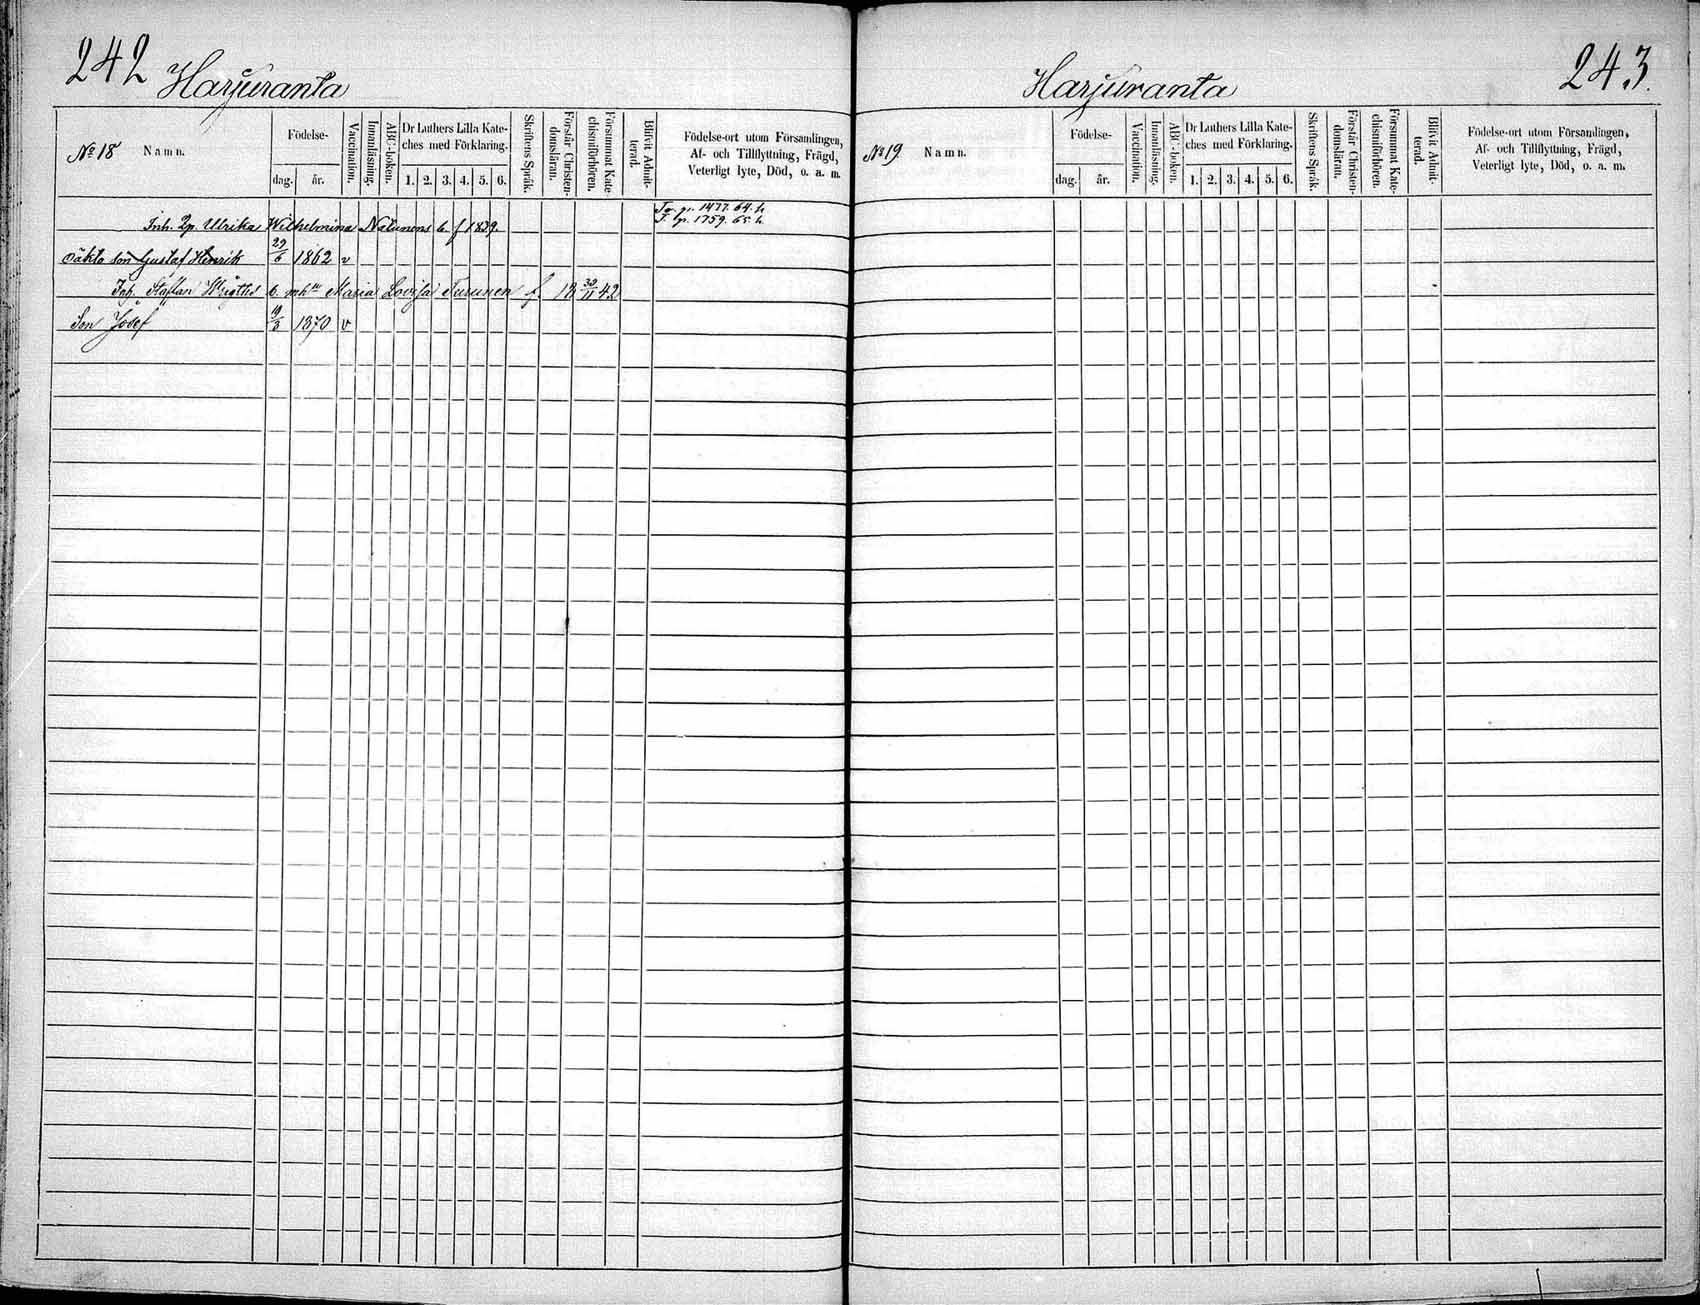 242 Harjuranta
№ 18 Namn.
Födelse-
dag. år.
Vaccination.
Innanläsning.
ABC-boken.
Dr Luthers Lilla Kate-
ches med Förklaring.
1. 2. 3. 4. 5. 6.
Skriftens Språk.
Förstår Christen-
domsläran.
Försummat Kate-
chismiförhören.
Blifvit Admit-
terad.
Födelse-ort utom Församlingen,
Af- och Tillflyttning, Frägd,
Veterligt lyte, Död, o. a. m.
Inh. Ulrika Wilhelmina f 1829
1477. 64.
1759. 65.
oäkta son Gustaf Henrik 29/6 1862 v
Inh. Staffan mh Maria Lovisa Turunen f. 18 30/11 42
Son Josef 19/3 1870 v
Harjuranta 243.
№ 19 Namn.
Födelse-
dag. år.
Vaccination.
Innanläsning.
ABC-boken.
Dr Luthers Lilla Kate-
ches med Förklaring.
1. 2. 3. 4. 5. 6.
Skriftens Språk.
Förstår Christen-
domsläran.
Försummat Kate-
chismiförhören.
Blifvit Admit-
terad.
Födelse-ort utom Församlingen,
Af- och Tillflyttning, Frägd,
Veterligt lyte, Död, o. a. m.